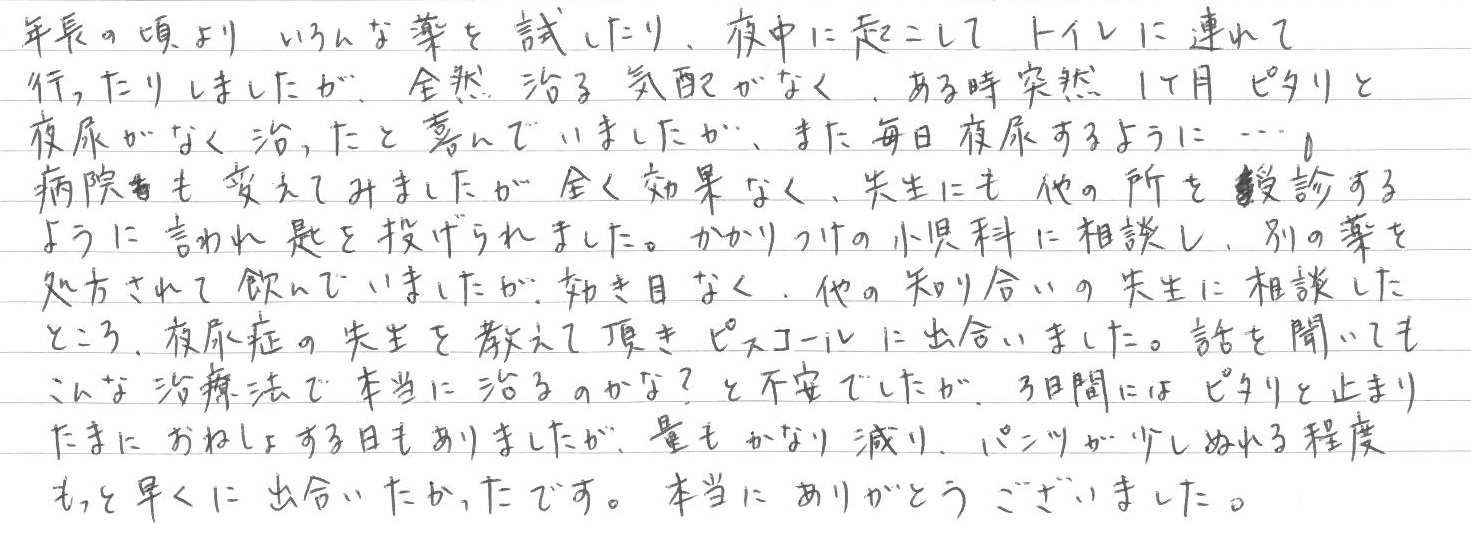 年長の頃より いろんな薬を 試したり、夜中に起こして トイレに 連れて
行ったりしましたが、全然 治る 気配がなく、ある時突然 1ケ月 ピタリと
夜尿がなく 治ったと 喜んで いましたが、また毎日 夜尿するように…。
病院も 変えてみましたが 全く 効果 なく、先生にも 他の 所を 受診する
ように 言われ 匙を 投げられました。かかりつけの 小児科に 相談し、別の 薬を
処方されて 飲んでいましたが、効き目 なく、他の 知り合いの 先生に 相談した
ところ、夜尿症の 先生を 教えて 頂き ピスコールに 出合いました。話を 聞いても
こんな 治療法で 本当に 治るのかな？と 不安でしたが、3日間には ピタリと 止まり
たまに おねしょする日も ありましたが、量も かなり 減り、パンツが 少し ぬれる 程度
もっと 早くに 出合いたかったです。本当に ありがとう ございました。